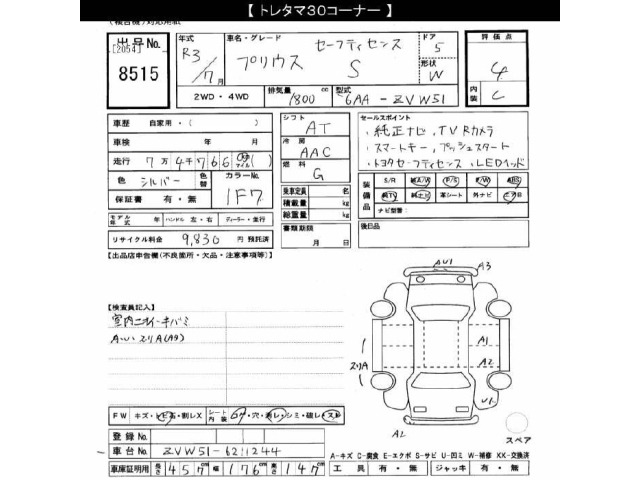 【 トレタマ30コーナー 】
(検合機)対応用紙
出品No. [2054] 8515
年式 R3/7月
車名・グレード プリウス セーフティセンス S
ドア 5
形状 W
評価点 4
内装 C
2WD・4WD
排気量 1800 cc
型式 6AA-ZVW51
車歴 自家用・( )
車検 年 月
走行 7万4千766 km マイル ( )
色 シルバー 色替
カラーNo. 1F7
保証書 有・無
モデル年式 年 ハンドル 左・右 ディーラー・並行
リサイクル料金 9,830 円 預託済
シフト AT
冷房 AAC
燃料 G
乗車定員 名
積載量 kg
総重量 kg
書類期限 月 日
セールスポイント
・純正ナビ,TVRカメラ
・スマートキー,プッシュスタート
・トヨタセーフティセンス,LEDヘッド
装備品 S/R 純A/W P/S P/W ABS
純TV 純ナビ 革シート 外ナビ エアB
ナビ型番:
後日品
【出品店申告欄(不良箇所・欠品・注意事項等)】
【検査員記入】
室内ニオイ・キバミ
A・U・スリA(A3)
AU1 A3
A1
スリA A2
U1
A2
スペア
FW キズ・トビ石・割レX
シート内装 コゲ・穴・スレ・シミ・破レ・スレ
登録No.
車台No. ZVW51-6211244
A-キズ C-腐食 E-エクボ S-サビ U-凹ミ W-補修 XX-交換済
車庫証明用 長さ 457 cm 幅 176 cm 高さ 147 cm
工具 有・無 ジャッキ 有・無